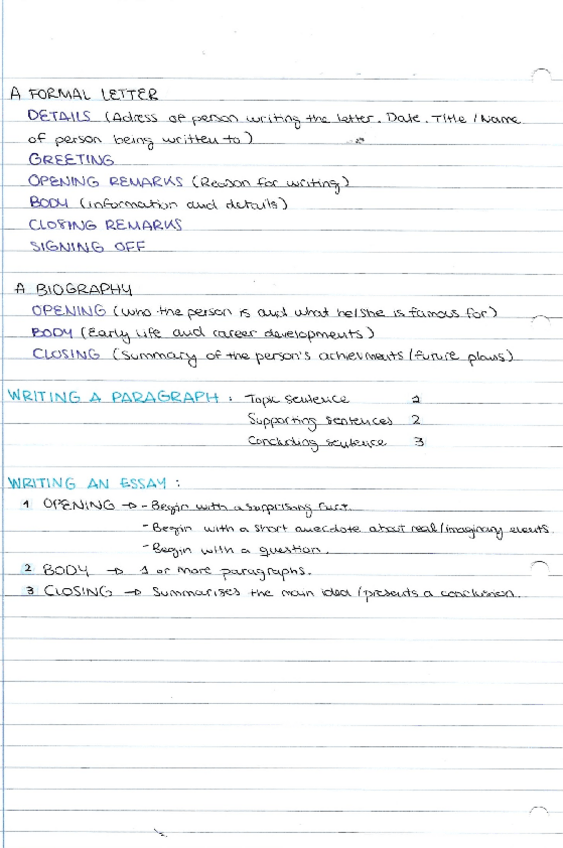 A FORMAL LETTER
DETAILS (Adress of person writing the letter. Date. Title / Name
of person being written to)
GREETING
OPENING REMARKS (Reason for writing)
BODY (information and details)
CLOSING REMARKS
SIGNING OFF
A BIOGRAPHY
OPENING (who the person is and what he/she is famous for)
BODY (Early life and career developments)
CLOSING (Summary of the person's achievments / future plans)
WRITING A PARAGRAPH : Topic sentence 1
Supporting sentences 2
Concluding sentence 3
WRITING AN ESSAY :
1 OPENING → - Begin with a surprising fact.
- Begin with a short anecdote about real/imaginary events.
- Begin with a question.
2 BODY → 1 or more paragraphs.
3 CLOSING → Summarises the main idea / presents a conclusion.